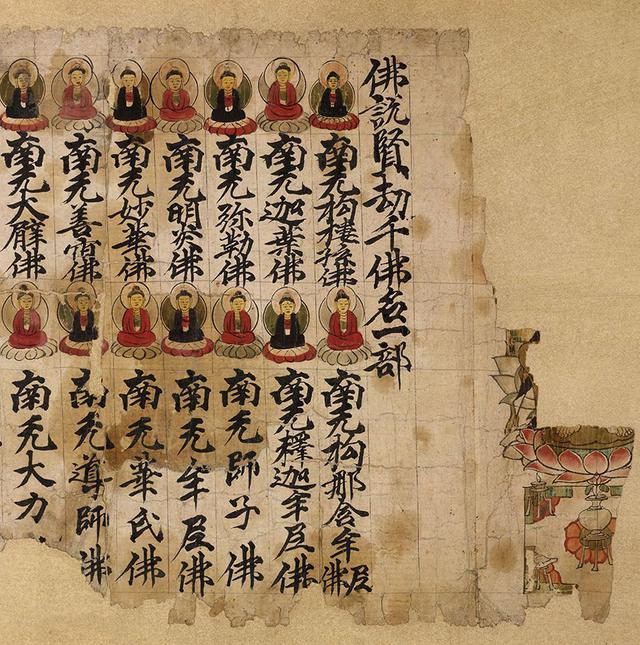 佛說賢劫千佛名一部
南无拘樓孫佛
南无拘那含牟尼佛
南无迦葉佛
南无釋迦牟尼佛
南无弥勒佛
南无師子佛
南无明炎佛
南无牟尼佛
南无妙華佛
南无華氏佛
南无善宿佛
南无導師佛
南无大臂佛
南无大力